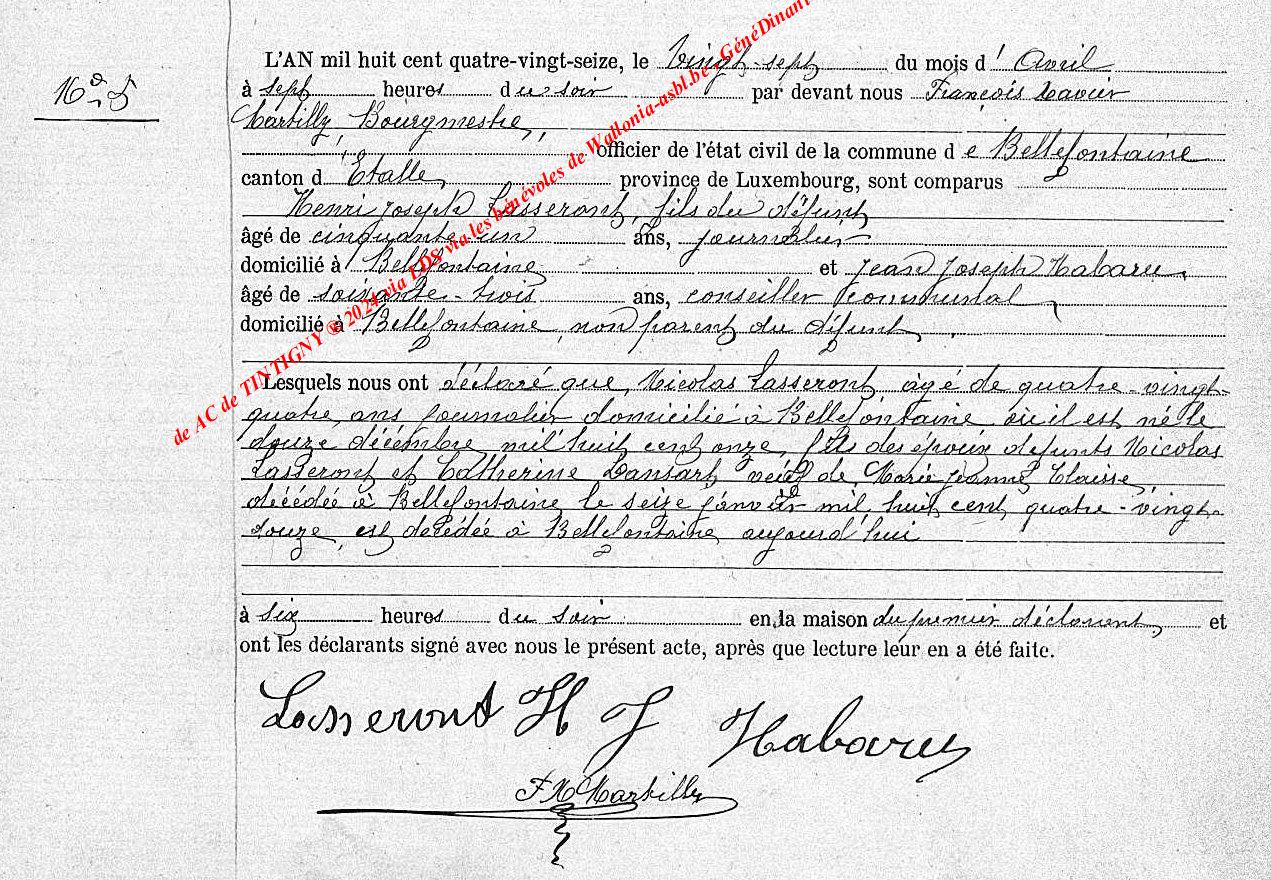 16e D
L'AN mil huit cent quatre-vingt-seize, le Vingt-sept du mois d' Avril
à sept heures du soir par devant nous François Xavier
Martilly, Bourgmestre,
officier de l'état civil de la commune de Bellefontaine
canton d'Etalle, province de Luxembourg, sont comparus
Henri Joseph Lasseront, fils du défunt
âgé de cinquante un ans, journalier
domicilié à Bellefontaine et Jean Joseph Habaru,
âgé de soixante-trois ans, conseiller communal,
domicilié à Bellefontaine, non parent du défunt,
Lesquels nous ont déclaré que Nicolas Lasseront âgé de quatre-vingt-
quatre ans journalier domicilié à Bellefontaine où il est né le
douze décembre mil huit cent onze, fils des époux défunts Nicolas
Lasseront et Catherine Lansart veuf de Marie Jeanne Claisse,
décédée à Bellefontaine le seize janvier mil huit cent quatre-vingt-
douze, est décédée à Bellefontaine aujourd'hui
à six heures du soir en la maison du premier déclarent, et
ont les déclarants signé avec nous le présent acte, après que lecture leur en a été faite.
Lasseront H J Habaru
F X Martilly
de AC de TINTIGNY © 2024 via LDS via les bénévoles de Wallonia-asbl.be - GénéDinant